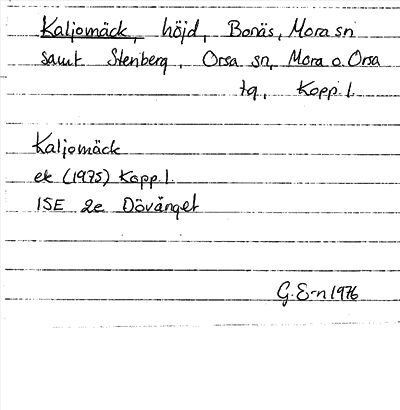 Kaljomäck, höjd, Bonäs, Mora sn
samt Stenberg, Orsa sn, Mora o. Orsa
tg, Kopp. l.
Kaljomäck
ek (1975) Kopp. l.
15E 2e Dövänget
G. E-n 1976